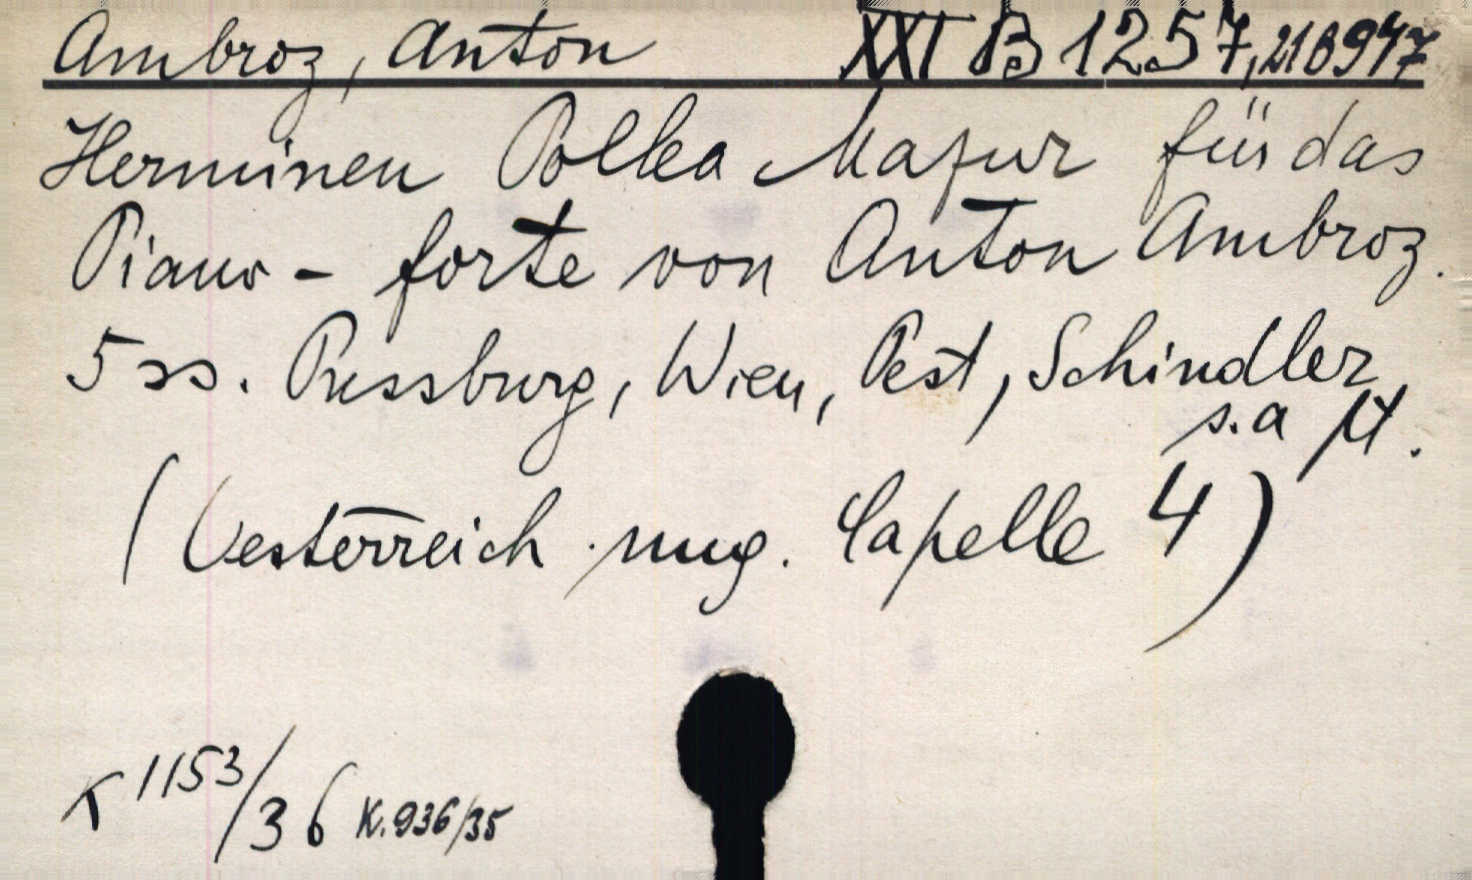 Ambroz, Anton XXI B 1257, 218947
Herminen Polka Mazur für das
Piano - forte von Anton Ambroz.
5 ss. Pressburg, Wien, Pest, Schindler,
s.a 4.
(Oesterreich. ung. Capelle 4)
K 1153/36 K.936/35